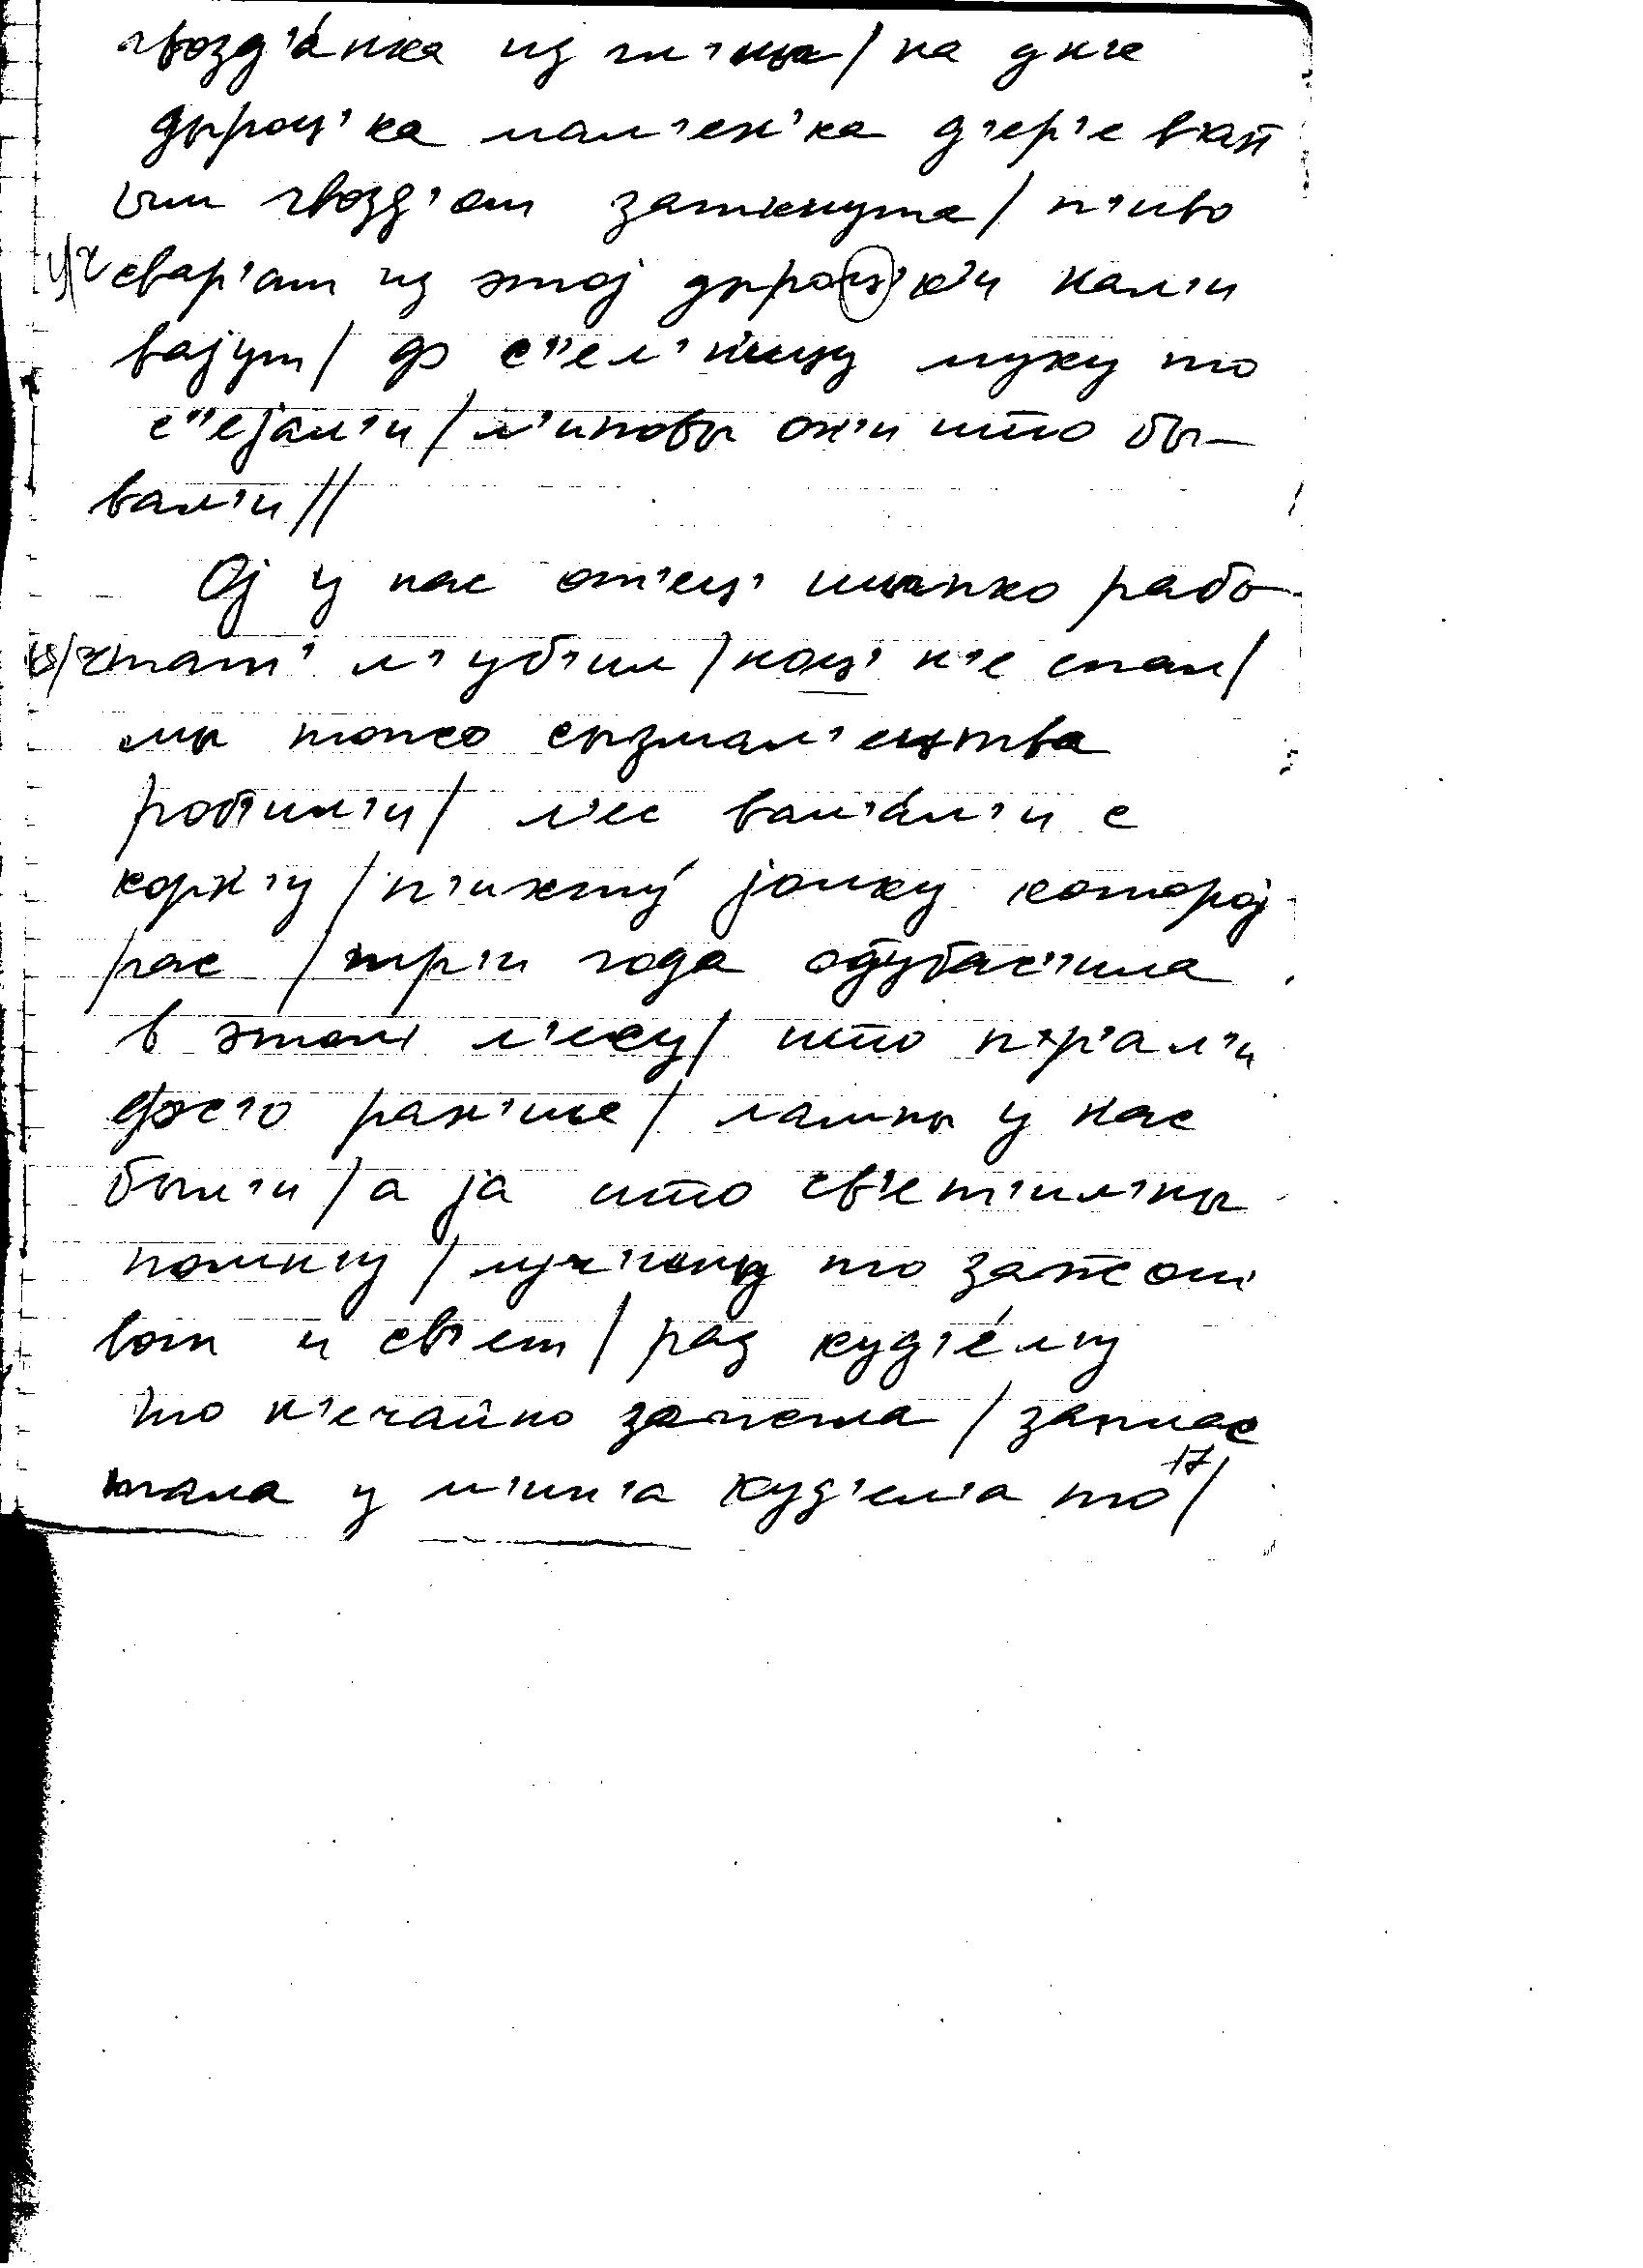 гвозд'а́нка из гл'ины / на дн'е
дыроц'ка мал'ен'ка д'ер'ев'ан
ым гвозд'ом заткнута / п'иво
ц/ч свар'ат из этоj дыроц'к'и нал'и
ваjут / ф с''ел'н'ицу муку то
с''еjал'и / л'иповы он'и што бы-
вал'и //
Оj у нас от'ец' шыпко рабо
ц/ч тат' л'убил / ноц' н'е спал /
мы тожо сызмал'ецтва
роб'ил'и / л'ес вал'а́л'и с
корн'у / п'ихту́ jолку котороj
рас / тр'и года одубас'ила
в этом л'есу / што пр'ал'и
фс'о ран'ше / лампы у нас
был'и / а jа што св'ет'ил'ны
помн'у / луч'ину то зажом
вот и св'ет / раз куд'е́л'у
то н'ечайно зажгла / заплас
тала у м'ин'а куд'ел'а то 17 /